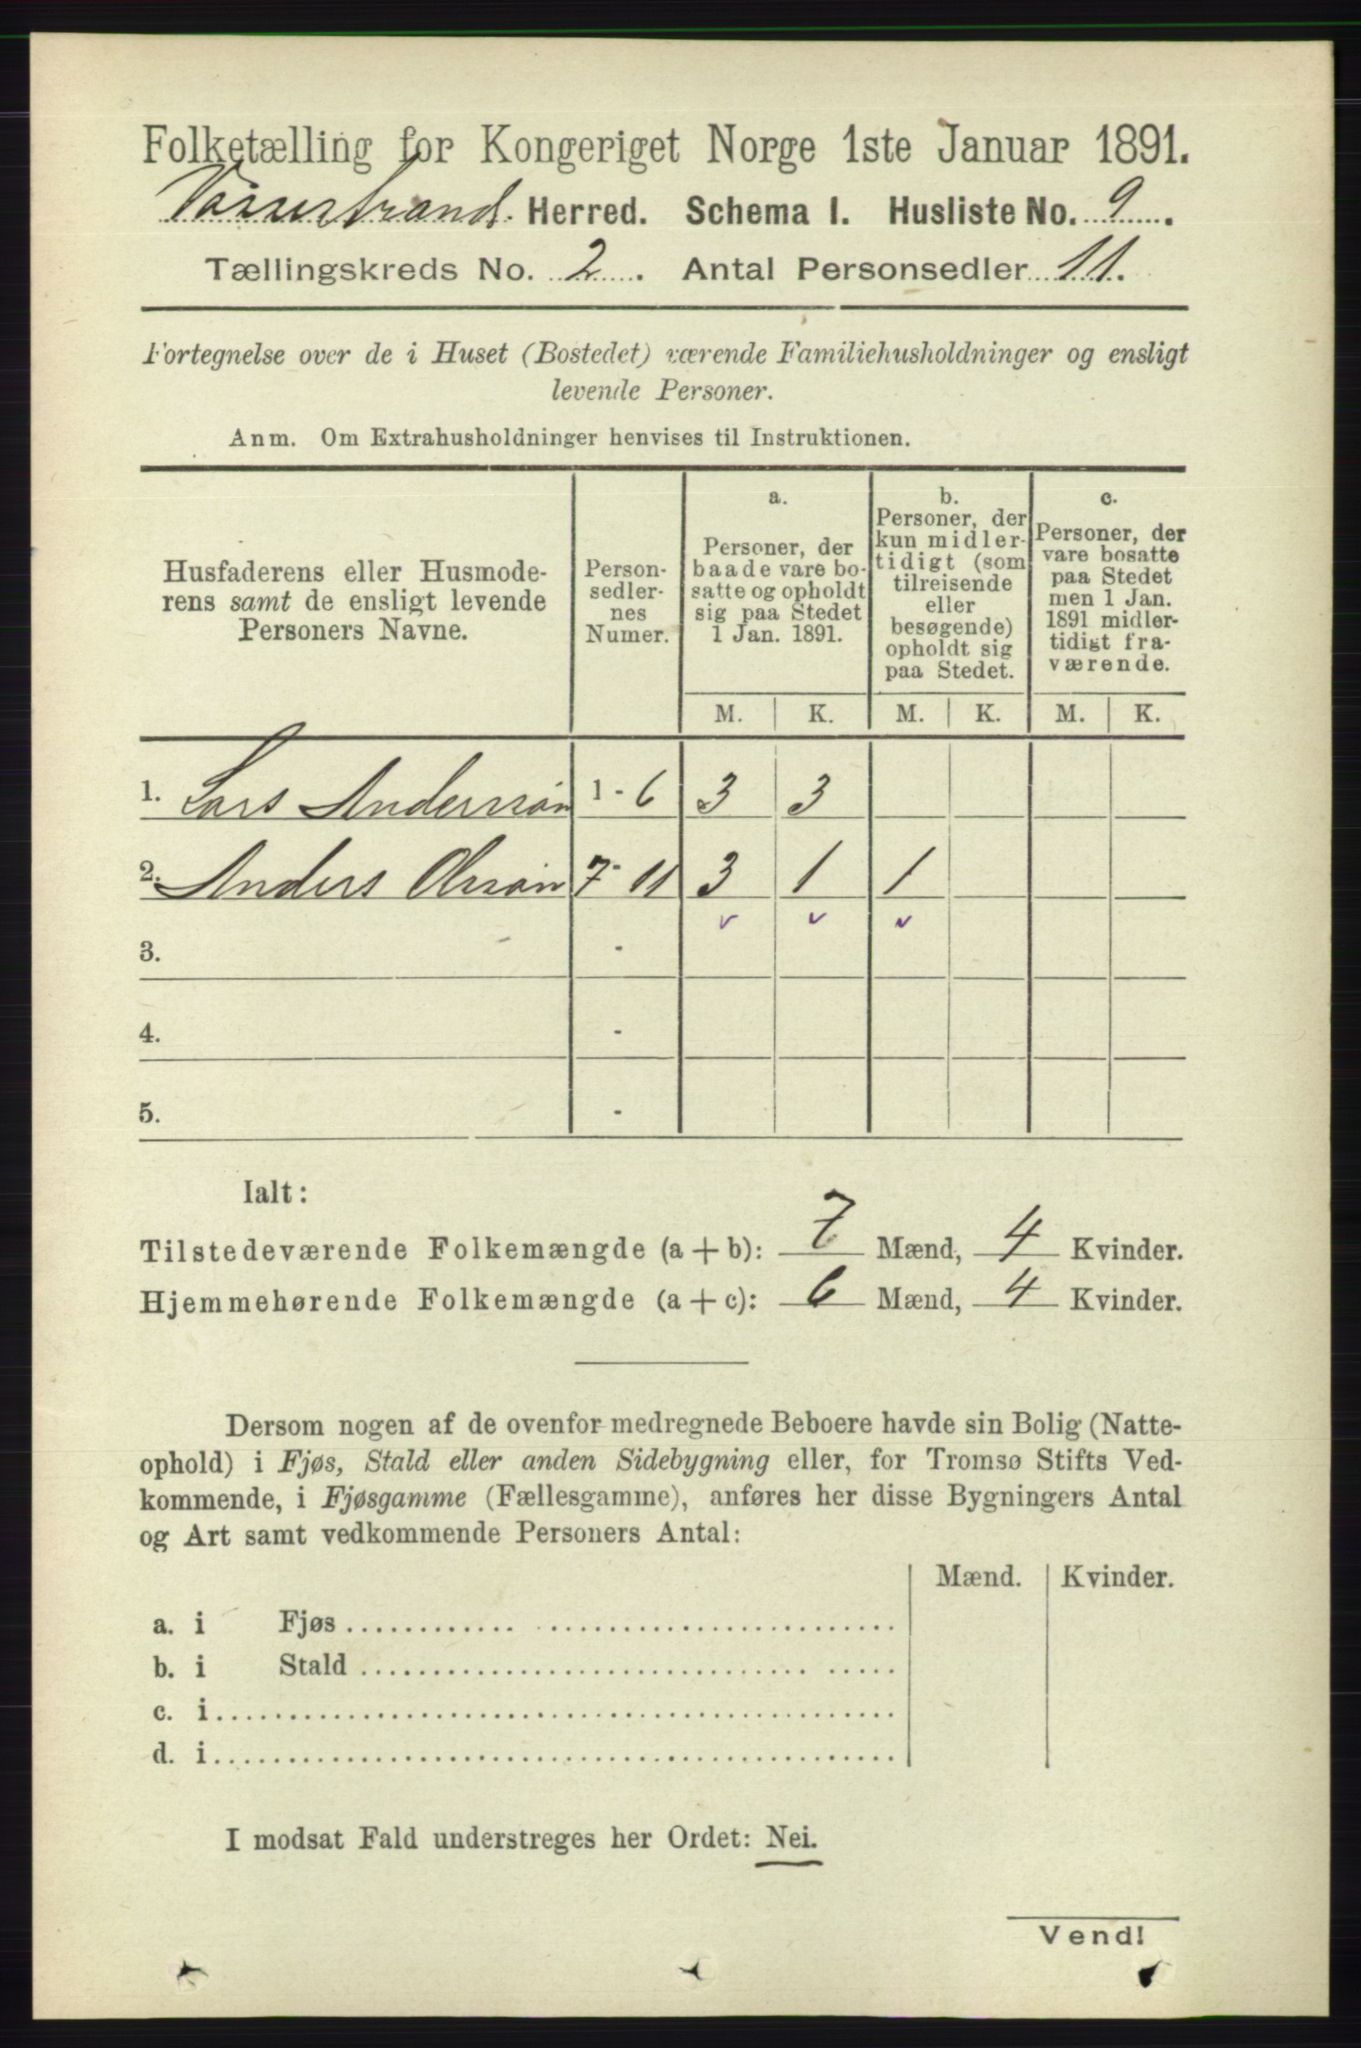 Folketælling for Kongeriget Norge 1ste Januar 1891.
Vossestrand Herred. Schema I. Husliste No. 9.
Tællingskreds No. 2. Antal Personsedler 11.
Fortegnelse over de i Huset (Bostedet) værende Familiehusholdninger og ensligt
levende Personer.
Anm. Om Extrahusholdninger henvises til Instruktionen.
Husfaderens eller Husmode-
rens samt de ensligt levende
Personers Navne.
Person-
sedler-
nes
Numer.
a.
Personer, der
baade vare bo-
satte og opholdt
sig paa Stedet
1 Jan. 1891.
b.
Personer, der
kun midler-
tidigt (som
tilreisende
eller
besøgende)
opholdt sig
paa Stedet.
c.
Personer, der
vare bosatte
paa Stedet
men 1 Jan.
1891 midler-
tidigt fra-
værende.
M. K. M. K. M. K.
1. Lars Anderssøn 1 - 6 3 3
2. Anders Olssøn 7 - 11 3 1 1
3. -
4. -
5. -
Ialt:
Tilstedeværende Folkemængde (a + b): 7 Mænd, 4 Kvinder.
Hjemmehørende Folkemængde (a + c): 6 Mænd, 4 Kvinder.
Dersom nogen af de ovenfor medregnede Beboere havde sin Bolig (Natte-
ophold) i Fjøs, Stald eller anden Sidebygning eller, for Tromsø Stifts Ved-
kommende, i Fjøsgamme (Fællesgamme), anføres her disse Bygningers Antal
og Art samt vedkommende Personers Antal:
Mænd. Kvinder.
a. i Fjøs
b. i Stald
c. i
d. i
I modsat Fald understreges her Ordet: Nei.
Vend!